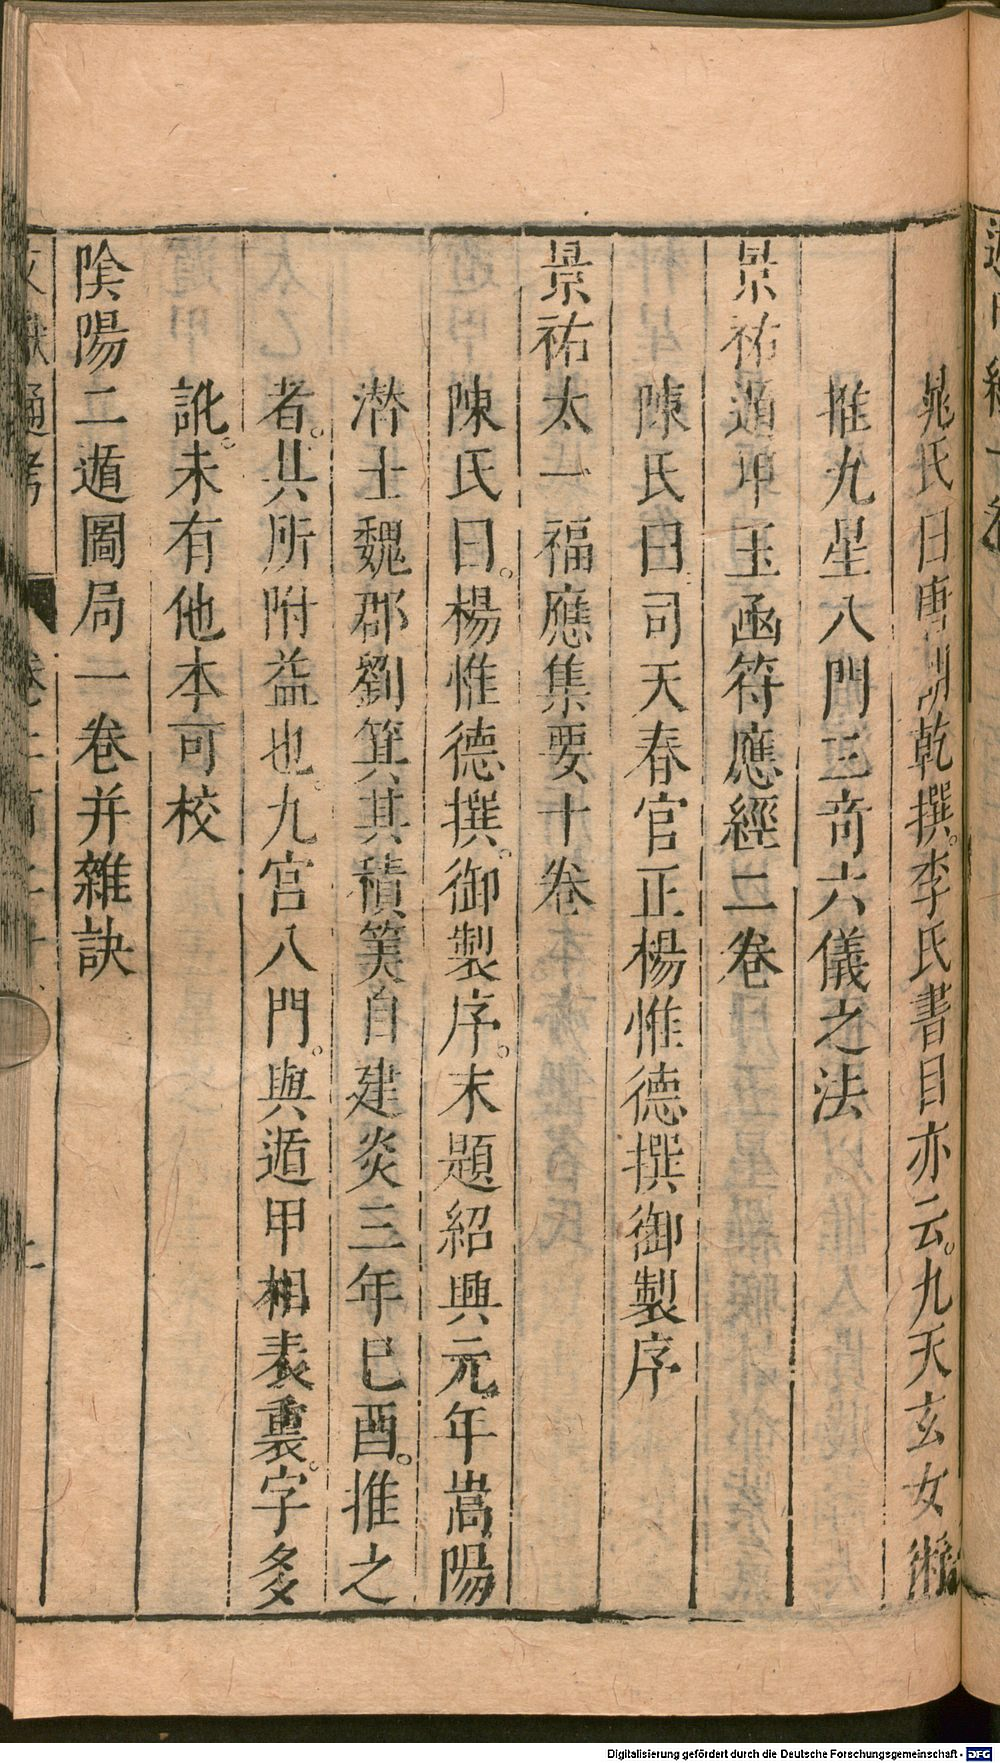 晁氏曰唐胡乾撰李氏書目亦云九天玄女術
推九星八門三竒六儀之法
景祐遁甲玉函符應經二卷
陳氏曰司天春官正楊惟德撰御製序
景祐太一福應集要十卷
陳氏曰楊惟德撰御製序末題紹興元年嵩陽
潜士魏郡劉箕其積筭自建炎三年巳酉推之
者其所附益也九宫八門與遁甲相表裏字多
訛未有他本可校
陰陽二遁圖局一卷并雜訣
文獻通考 卷二百二十
Digitalisierung gefördert durch die Deutsche Forschungsgemeinschaft - DFG